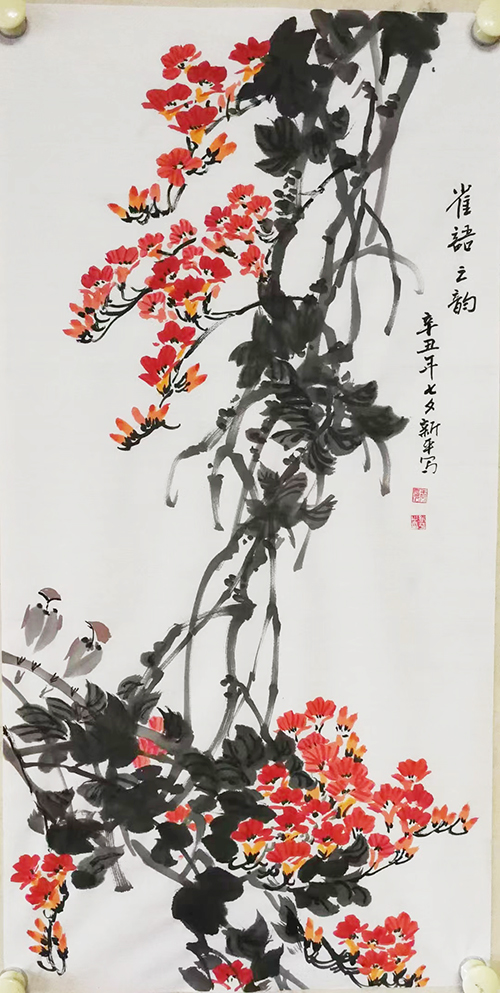 雀語之韵
辛丑年七夕新平写